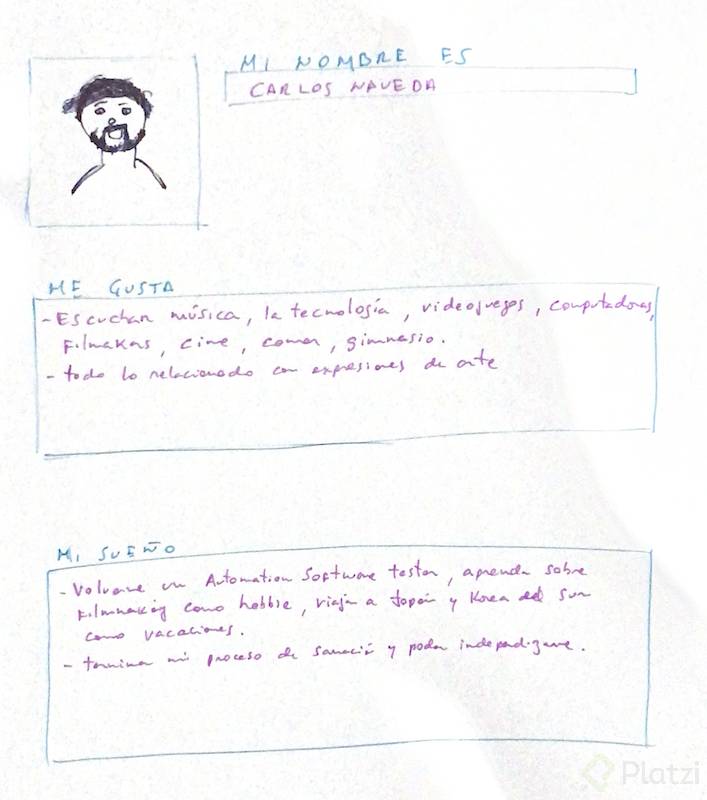 MI NOMBRE ES
CARLOS NAVEDA
ME GUSTA
- Escuchar música, la tecnología, videojuegos, computadoras,
Filmakers, cine, comer, gimnasio.
- todo lo relacionado con expresiones de arte
MI SUEÑO
- Volverme un Automation Software tester, aprender sobre
Filmmaking como hobbie, viajar a Japón y Korea del Sur
como vacaciones.
- terminar mi proceso de sanación y poder independizarme.
Platzi